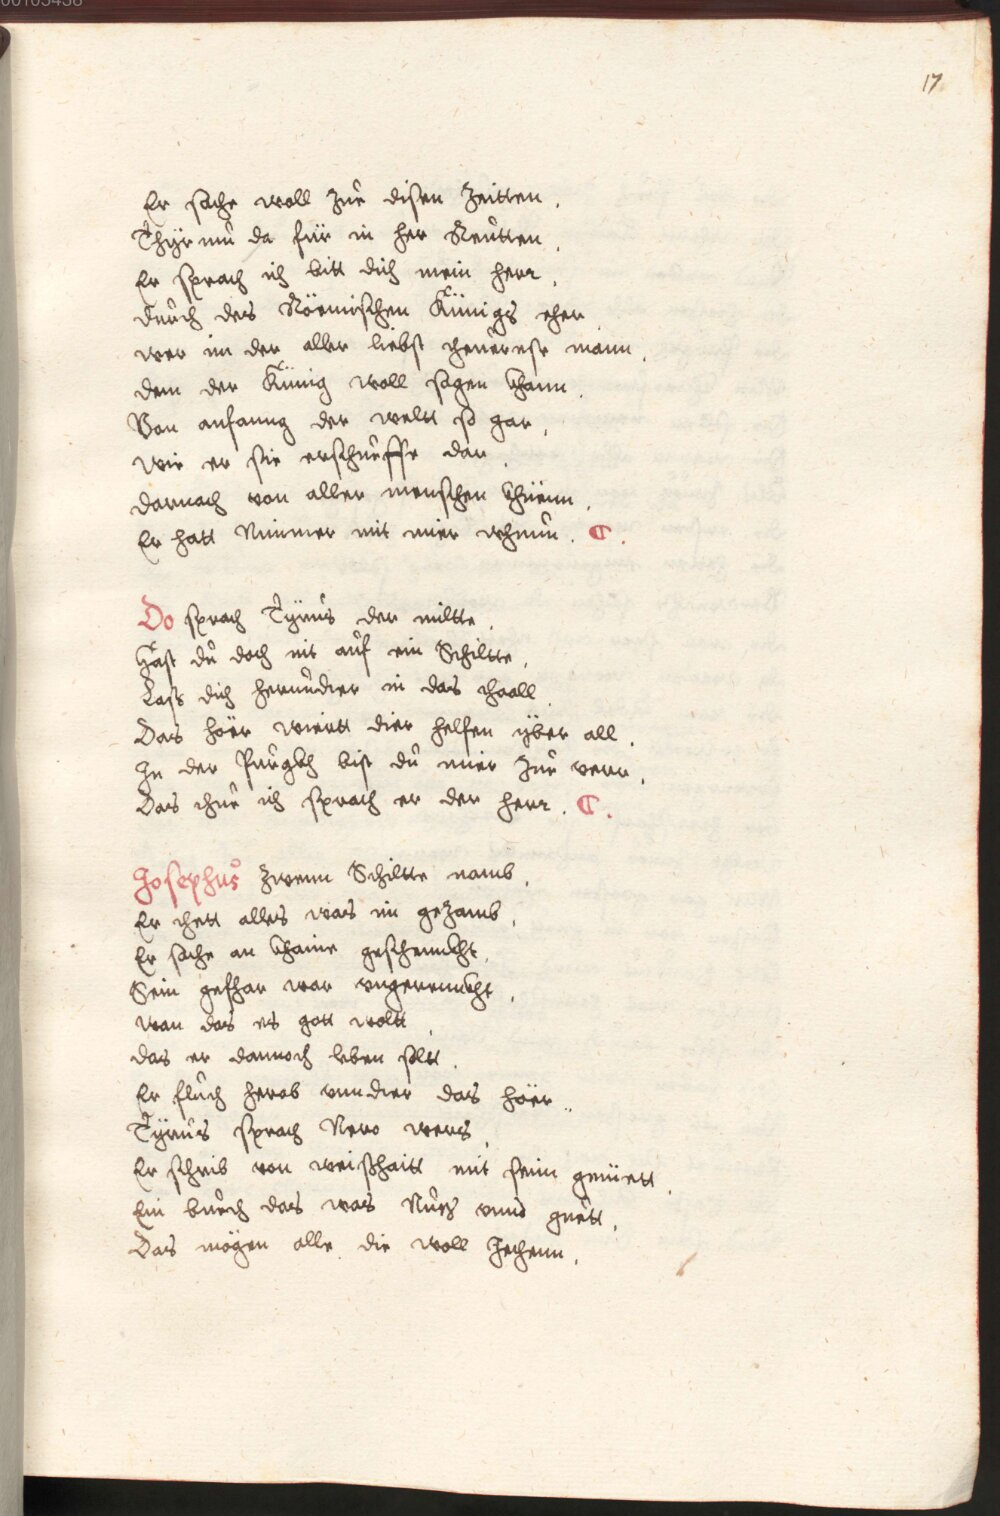 00105438
17
Er sache woll zuͦe disen Zeitten.
Thyrmu da für in her Reutten.
Er sprach ich bitt dich mein herr.
durch des Röemischen Künigs eher
wer im der aller liebst man.
dem der Künig woll sagen khann.
Von anfanng der wellt so gar.
wie er sie erschueffe dar.
darnach von aller menschen khüenn.
Er hatt Nimmer mit mier
Do sprach Tyrus der miltte.
Hast du doch nit auf ein Schiltte.
Lass dich herundter in das thaall
Das höer wiertt dier helfen über all.
In der Purgkh bist du mier zue verr.
Das thue ich sprach er der herr.
Josephus zwenn Schiltte namb.
Er thett alles was im gezamb.
Er sache an khaine geschemikht.
Sein gesthar war vngerrnickht.
wan das es gott woltt.
das er dannoch leben soltt.
Er fluch herab vnndter das höer.
Tyrus sprach Nero wers.
Er schrib von weisshaitt mit seim gemüett.
Ein buech das was Nutz vnnd guett.
Das mögen alle die woll Jechenn.